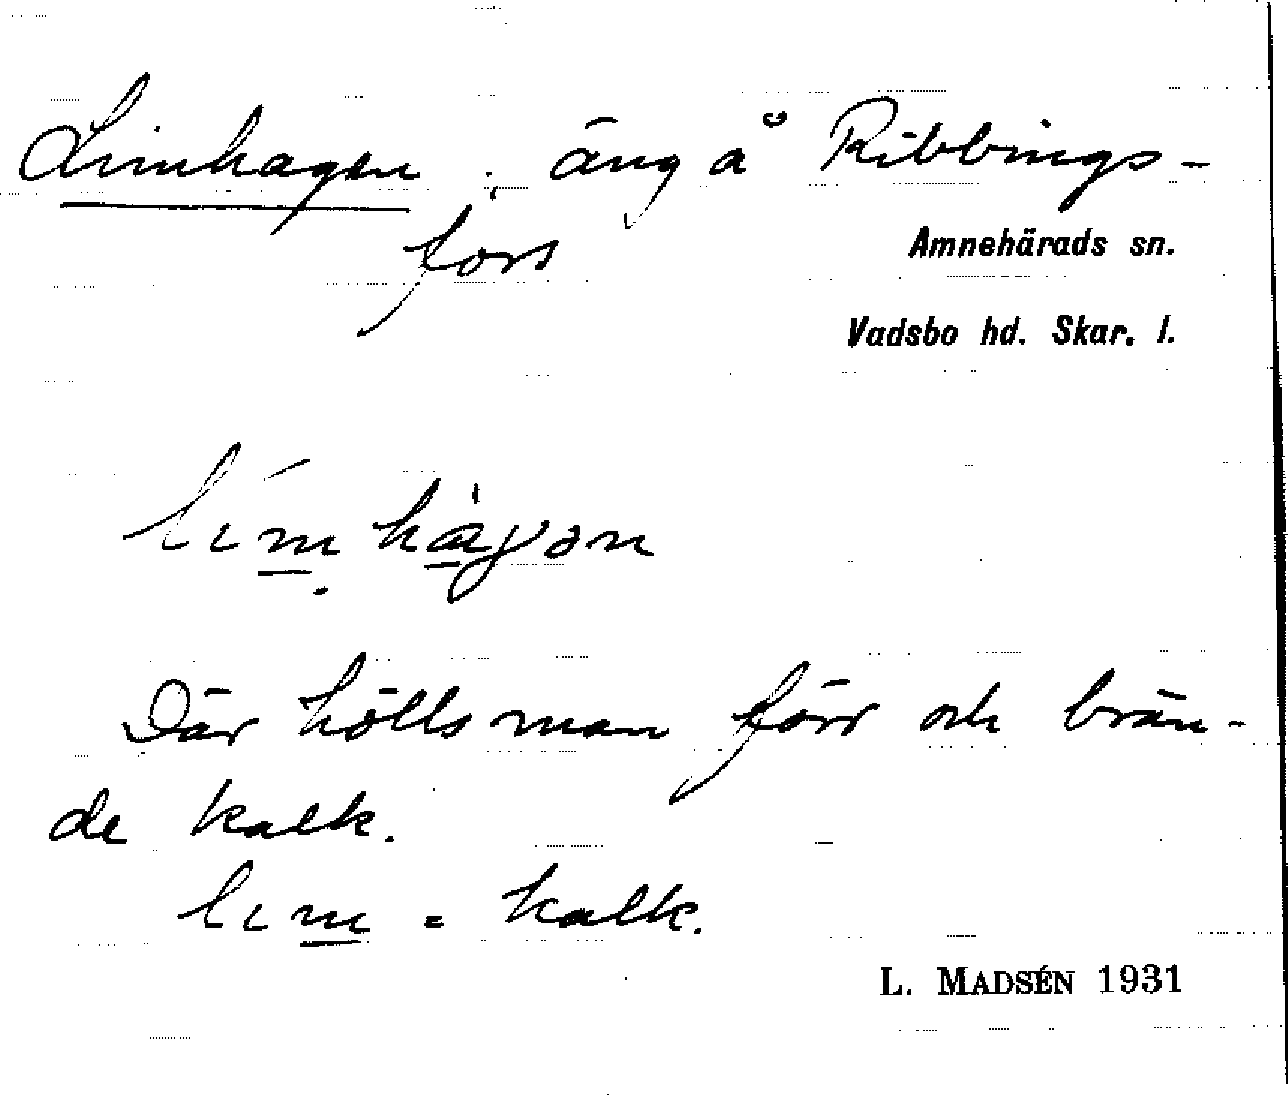 Limhagen, äng å Ribbings-
fors
Amnehärads sn.
Vadsbo hd. Skar. l.
Där hölls man förr och brän-
de kalk.
lim = kalk.
L. MADSÉN 1931